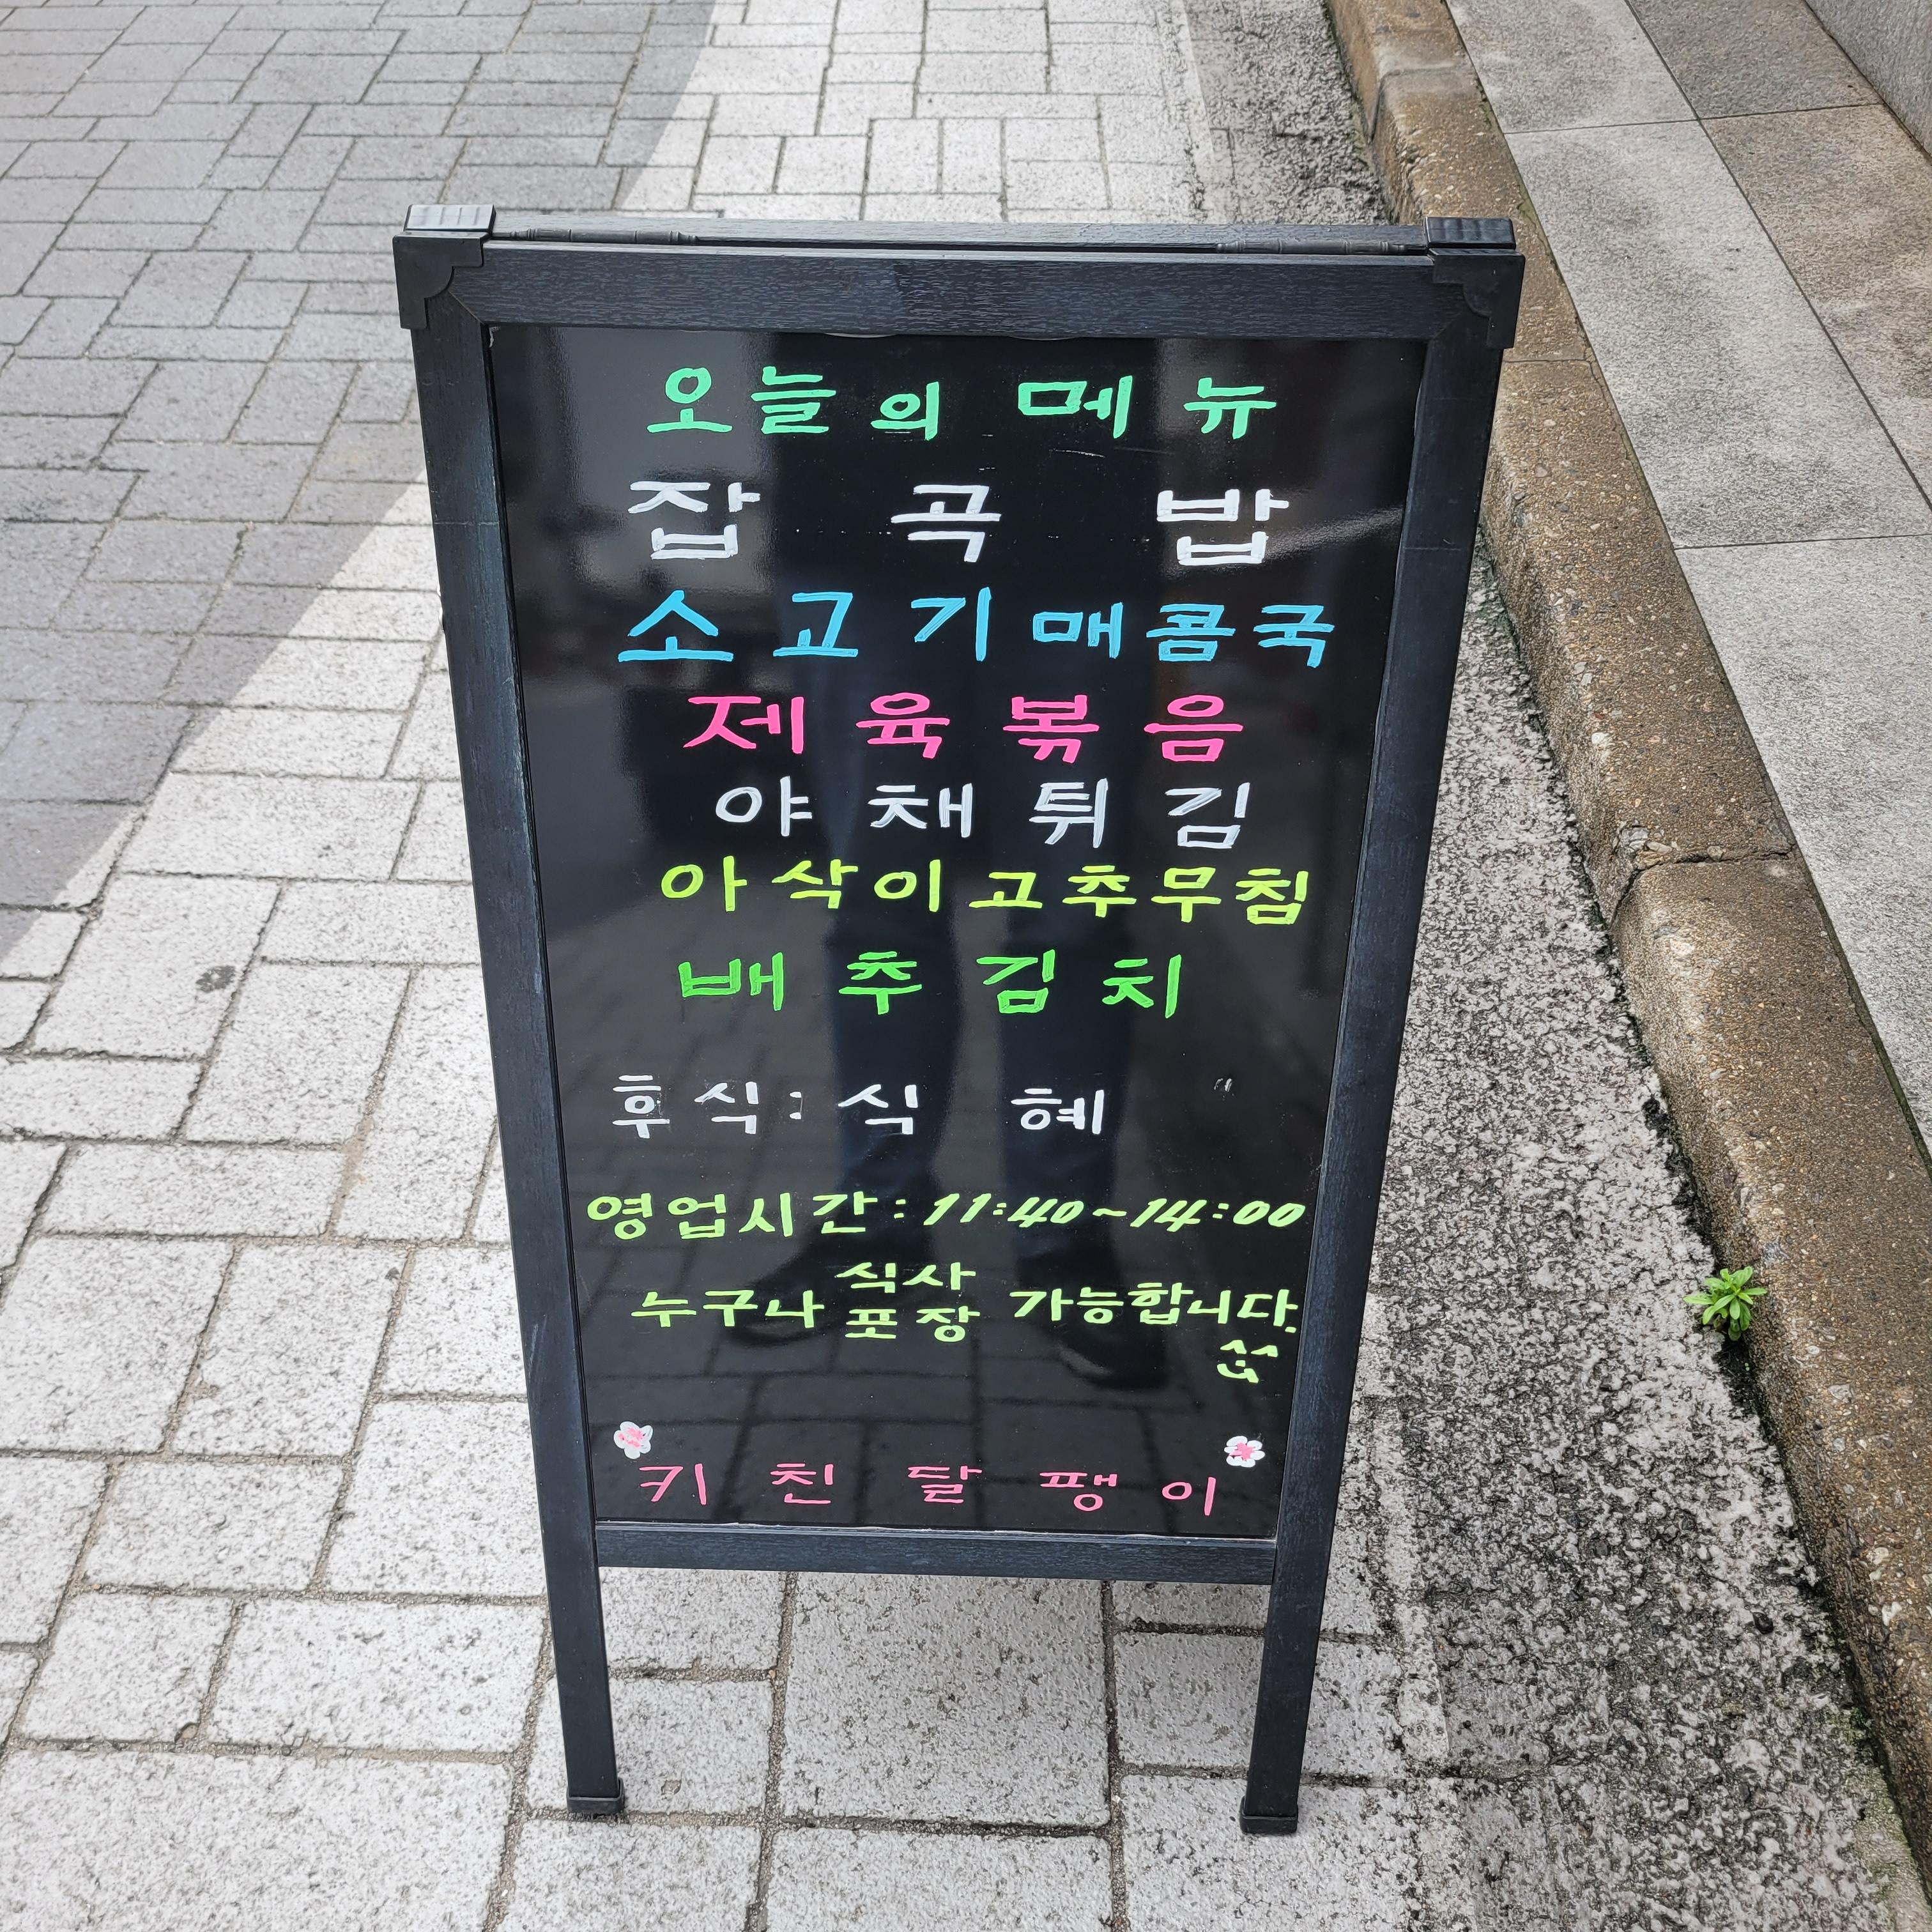 오늘의 메뉴
잡곡밥
소고기매콤국
제육볶음
야채튀김
아삭이고추무침
배추김치
후식: 식혜
영업시간: 11:40~14:00
누구나 식사 포장 가능합니다.
키친달팽이